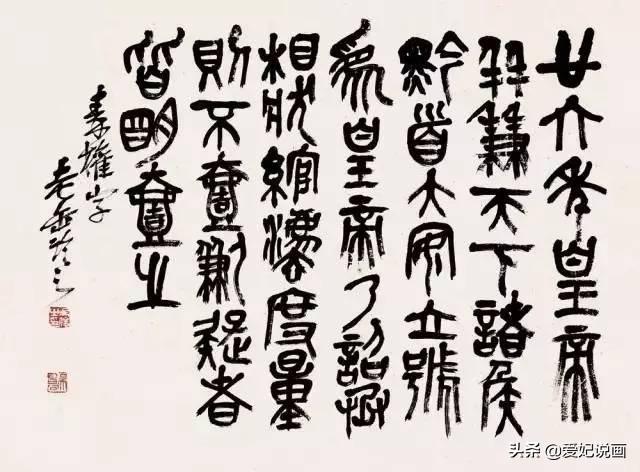 廿六年皇帝
并兼天下諸侯
黔首大安立號
為皇帝乃詔丞
相狀綰灋度量
則不壹歉疑者
皆明壹之
秦權字
老缶臨之
头条 @爱妃说画